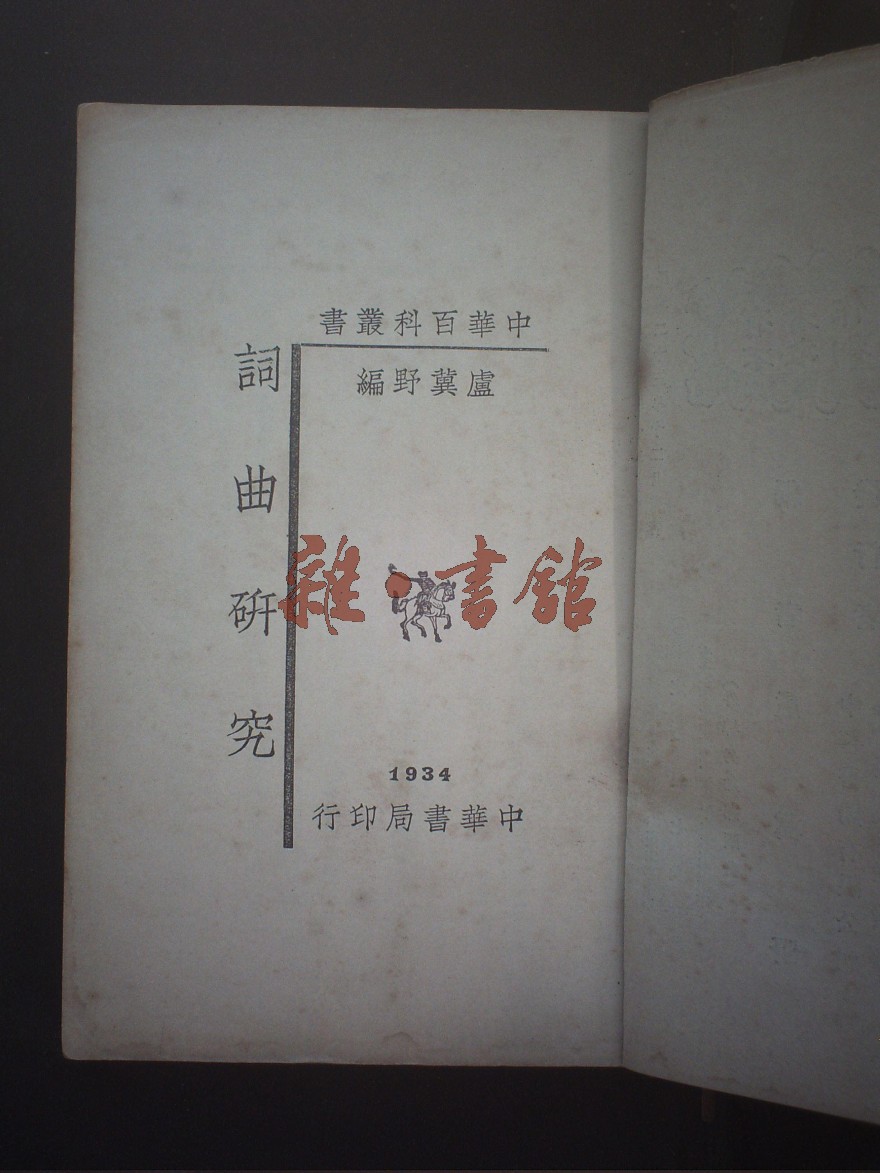 中華百科叢書
盧冀野編
詞曲研究
雜·書館
1934
中華書局印行